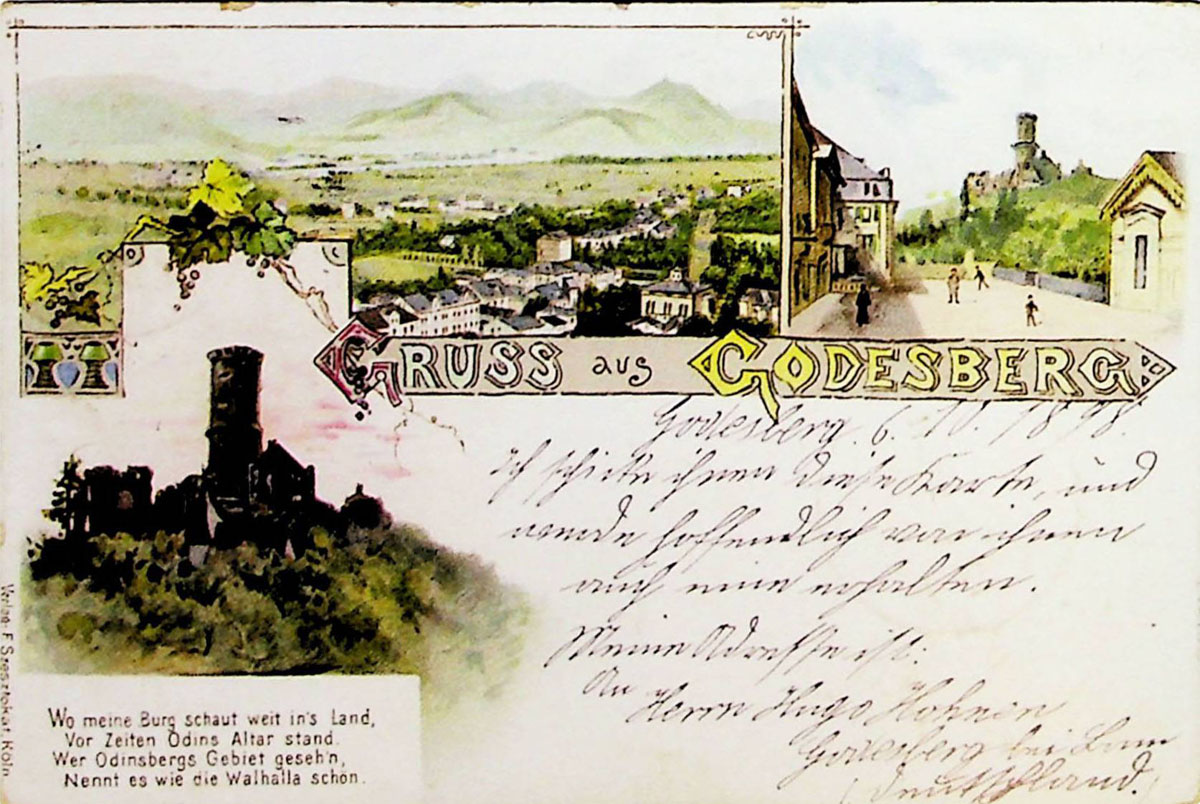 GRUSS aus GODESBERG
Godesberg. 6. 10. 1898.
Ich schicke ihnen diese Karte, und
werde hoffendlich von ihnen
auch eine erhalten.
Meine Adresse ist:
An
Herrn Hugo Hohnen
Godesberg bei Bonn
(Deutschland.)
Wo meine Burg schaut weit in's Land,
Vor Zeiten Odins Altar stand.
Wer Odinsbergs Gebiet geseh'n,
Nennt es wie die Walhalla schön.
Verlag. F. Szesztokat, Köln